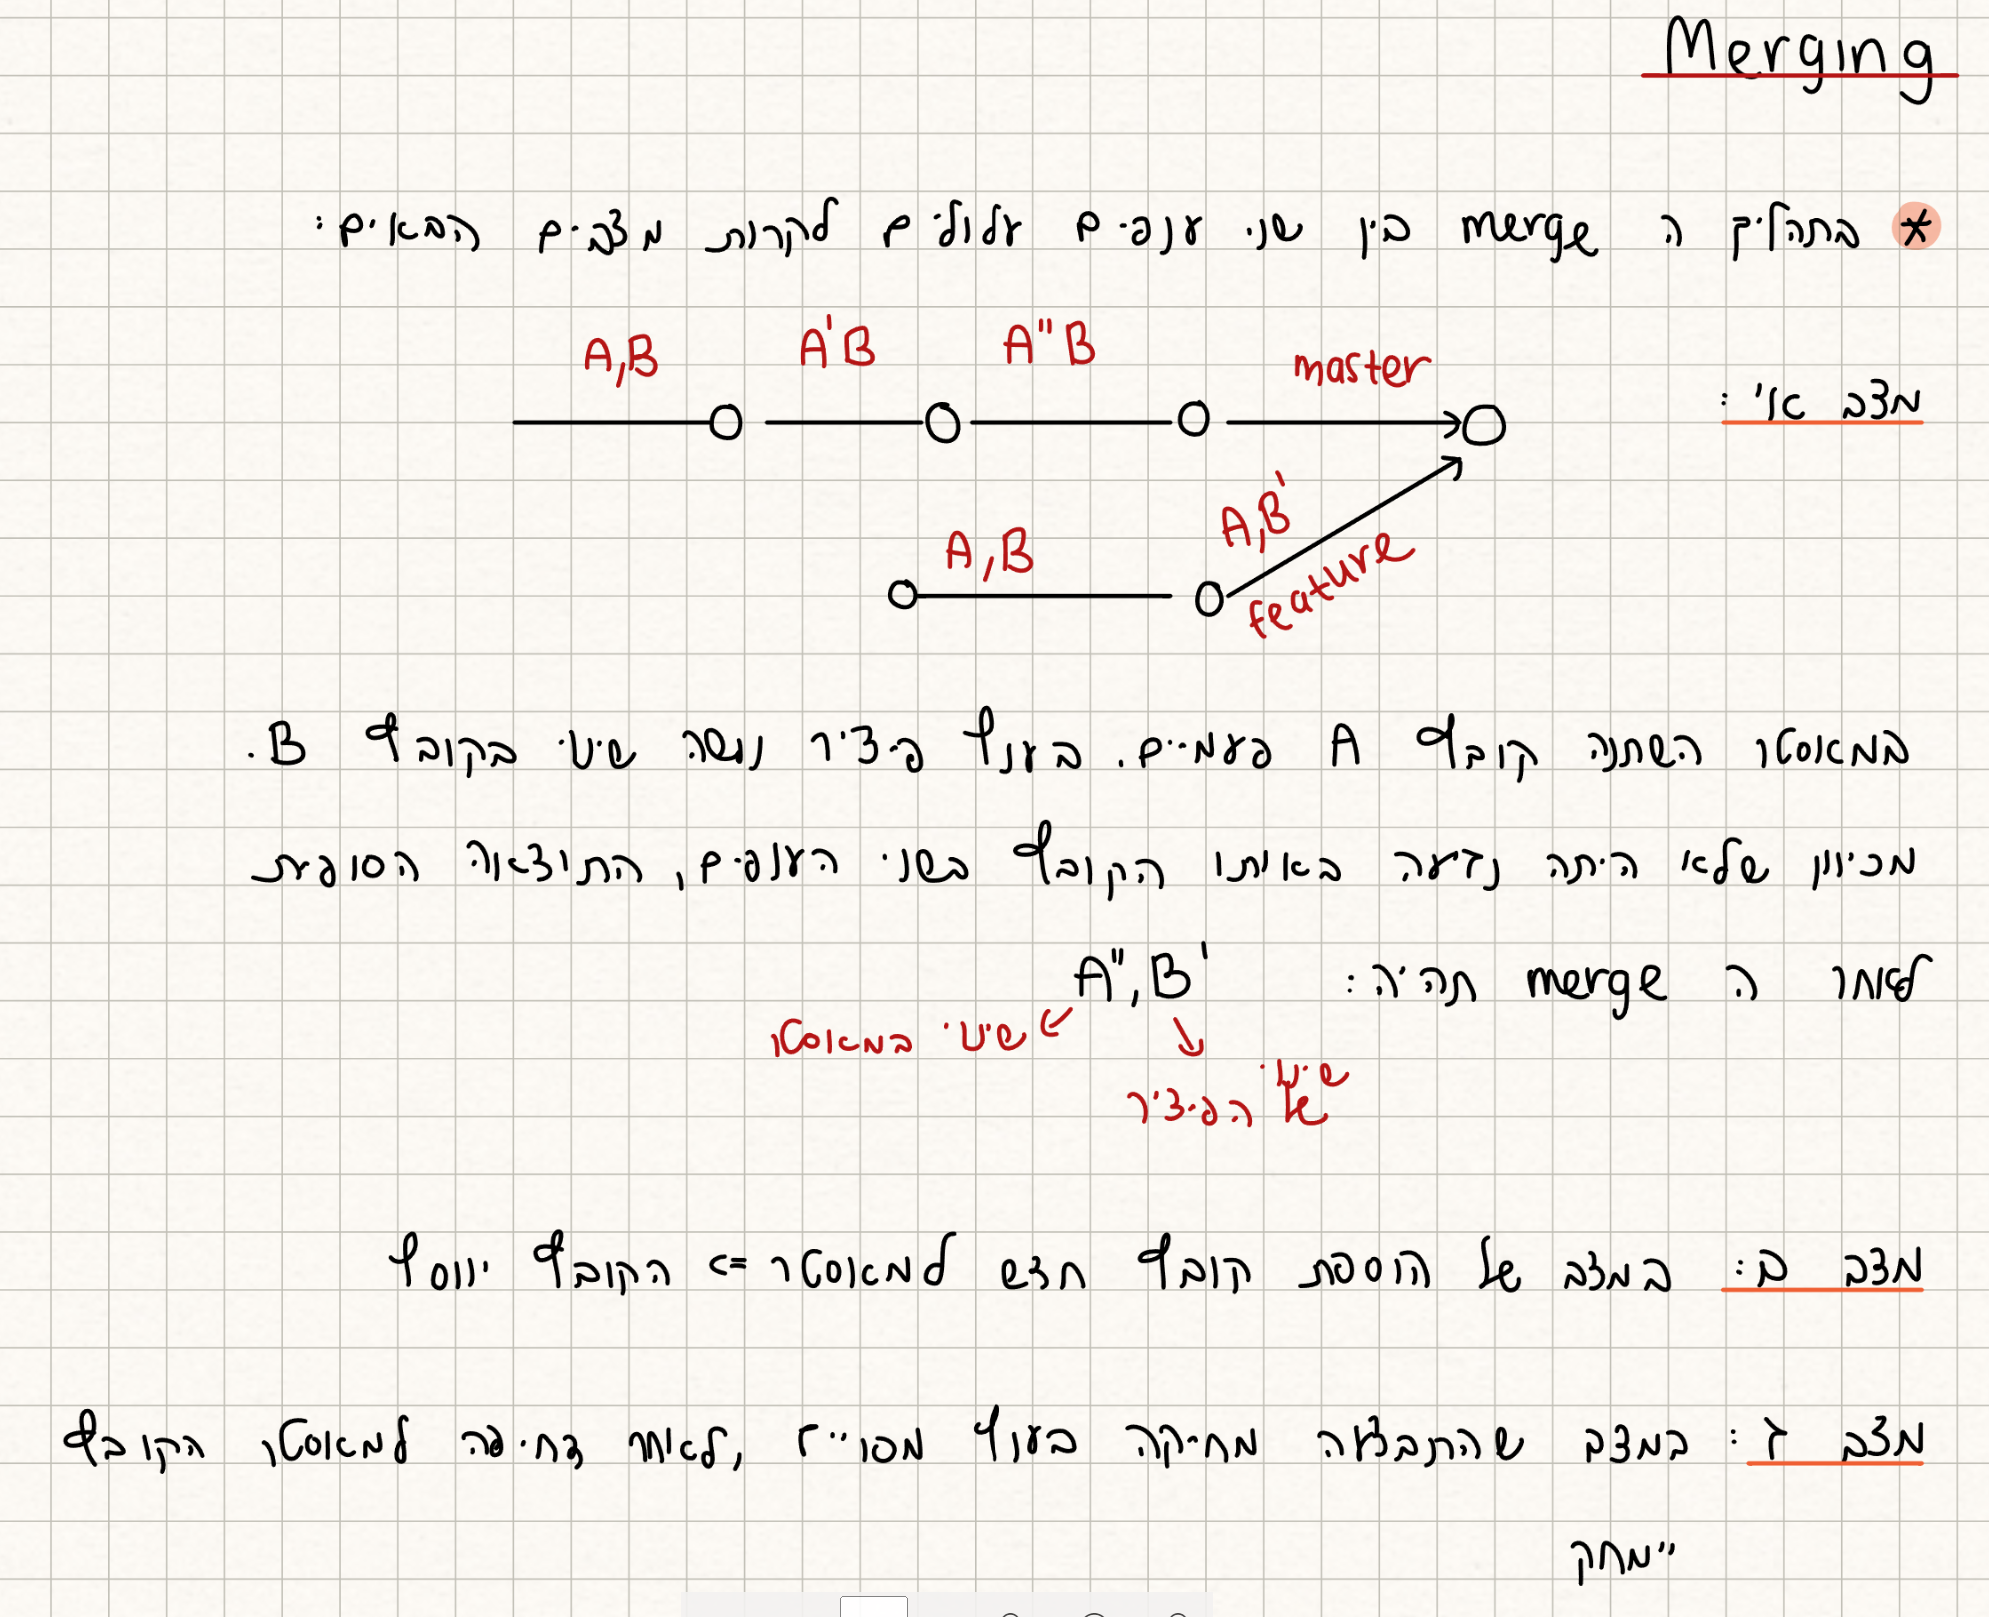 Merging
* בתהליך ה merge בין שני ענפים עלולים לקרות מצבים הבאים:
A,B A'B A"B master
מצב א':
A,B'
A,B
feature
במאסטר השתנה קובץ A פעמיים. בענף פיצ'ר נעשה שינוי בקובץ B.
מכיוון שלא היתה נגיעה באותו הקובץ בשני הענפים, התוצאה הסופית
לאחר ה merge תהיה: A",B'
שינוי במאסטר
שינוי
של הפיצ'ר
מצב ב: במצב של הוספת קובץ חדש למאסטר => הקובץ יווסף
מצב ג: במצב שהתבצעה מחיקה בענף מסויים, לאחר דחיפה למאסטר הקובץ
יימחק